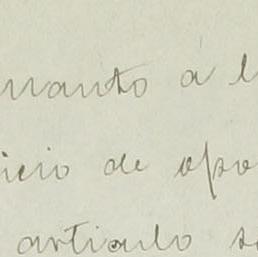 cuanto a l
icio de opo
articulo s